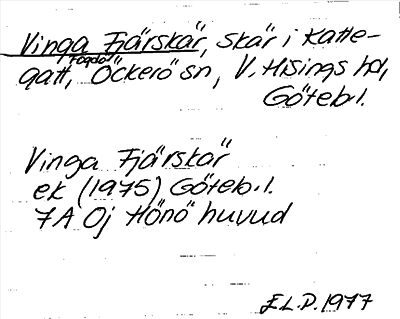 Vinga Fjärskär, skär i Katte-
gatt, Öckerö sn, V. Hisings hd,
Göteb.l.
Vinga Fjärskär
ek (1975) Göteb.l.
7A 0j Hönö huvud
E.L.P. 1977